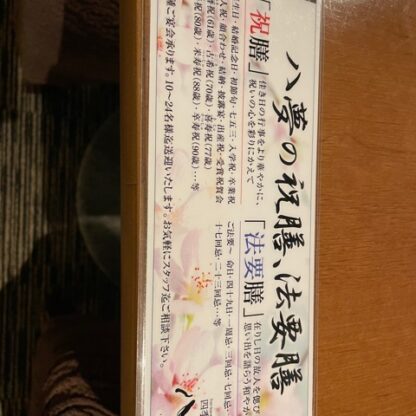 八夢の祝膳、法要膳
「祝膳」
佳き日の行事をより華やかに、
祝いの心を彩りにかえて
生日・結婚記念日・初節句・七五三・入学祝・卒業祝
人祝・顔合わせ・結納・披露宴・出産祝・受賞祝賀会
寿祝(61歳)・古希祝(70歳)・喜寿祝(77歳)
祝(80歳)・米寿祝(88歳)・卒寿祝(90歳)…等
「法要膳」
在りし日の故人を偲び
思い出を語らう和やか
ご法要〜 命日・四十九日・一周忌・三回忌・七回忌
十七回忌・二十三回忌…等
種ご宴会承ります。10〜24名様迄送迎いたします。お気軽にスタッフ迄ご相談下さい。
四季
八